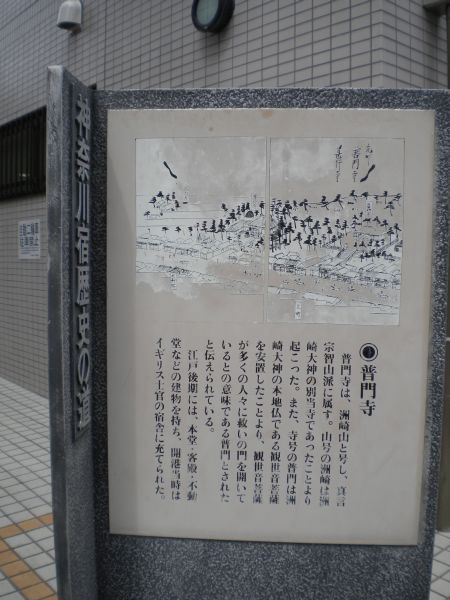 神奈川宿歴史の道
普門寺
普門寺は、洲崎山と号し、真言
宗智山派に属す。山号の洲崎は洲
崎大神の別当寺であったことより
起こった。また、寺号の普門は洲
崎大神の本地仏である観世音菩薩
を安置したことより、観世音菩薩
が多くの人々に救いの門を開いて
いるとの意味である普門とされた
と伝えられている。
江戸後期には、本堂・客殿・不動
堂などの建物を持ち、開港当時は
イギリス士官の宿舎に充てられた。